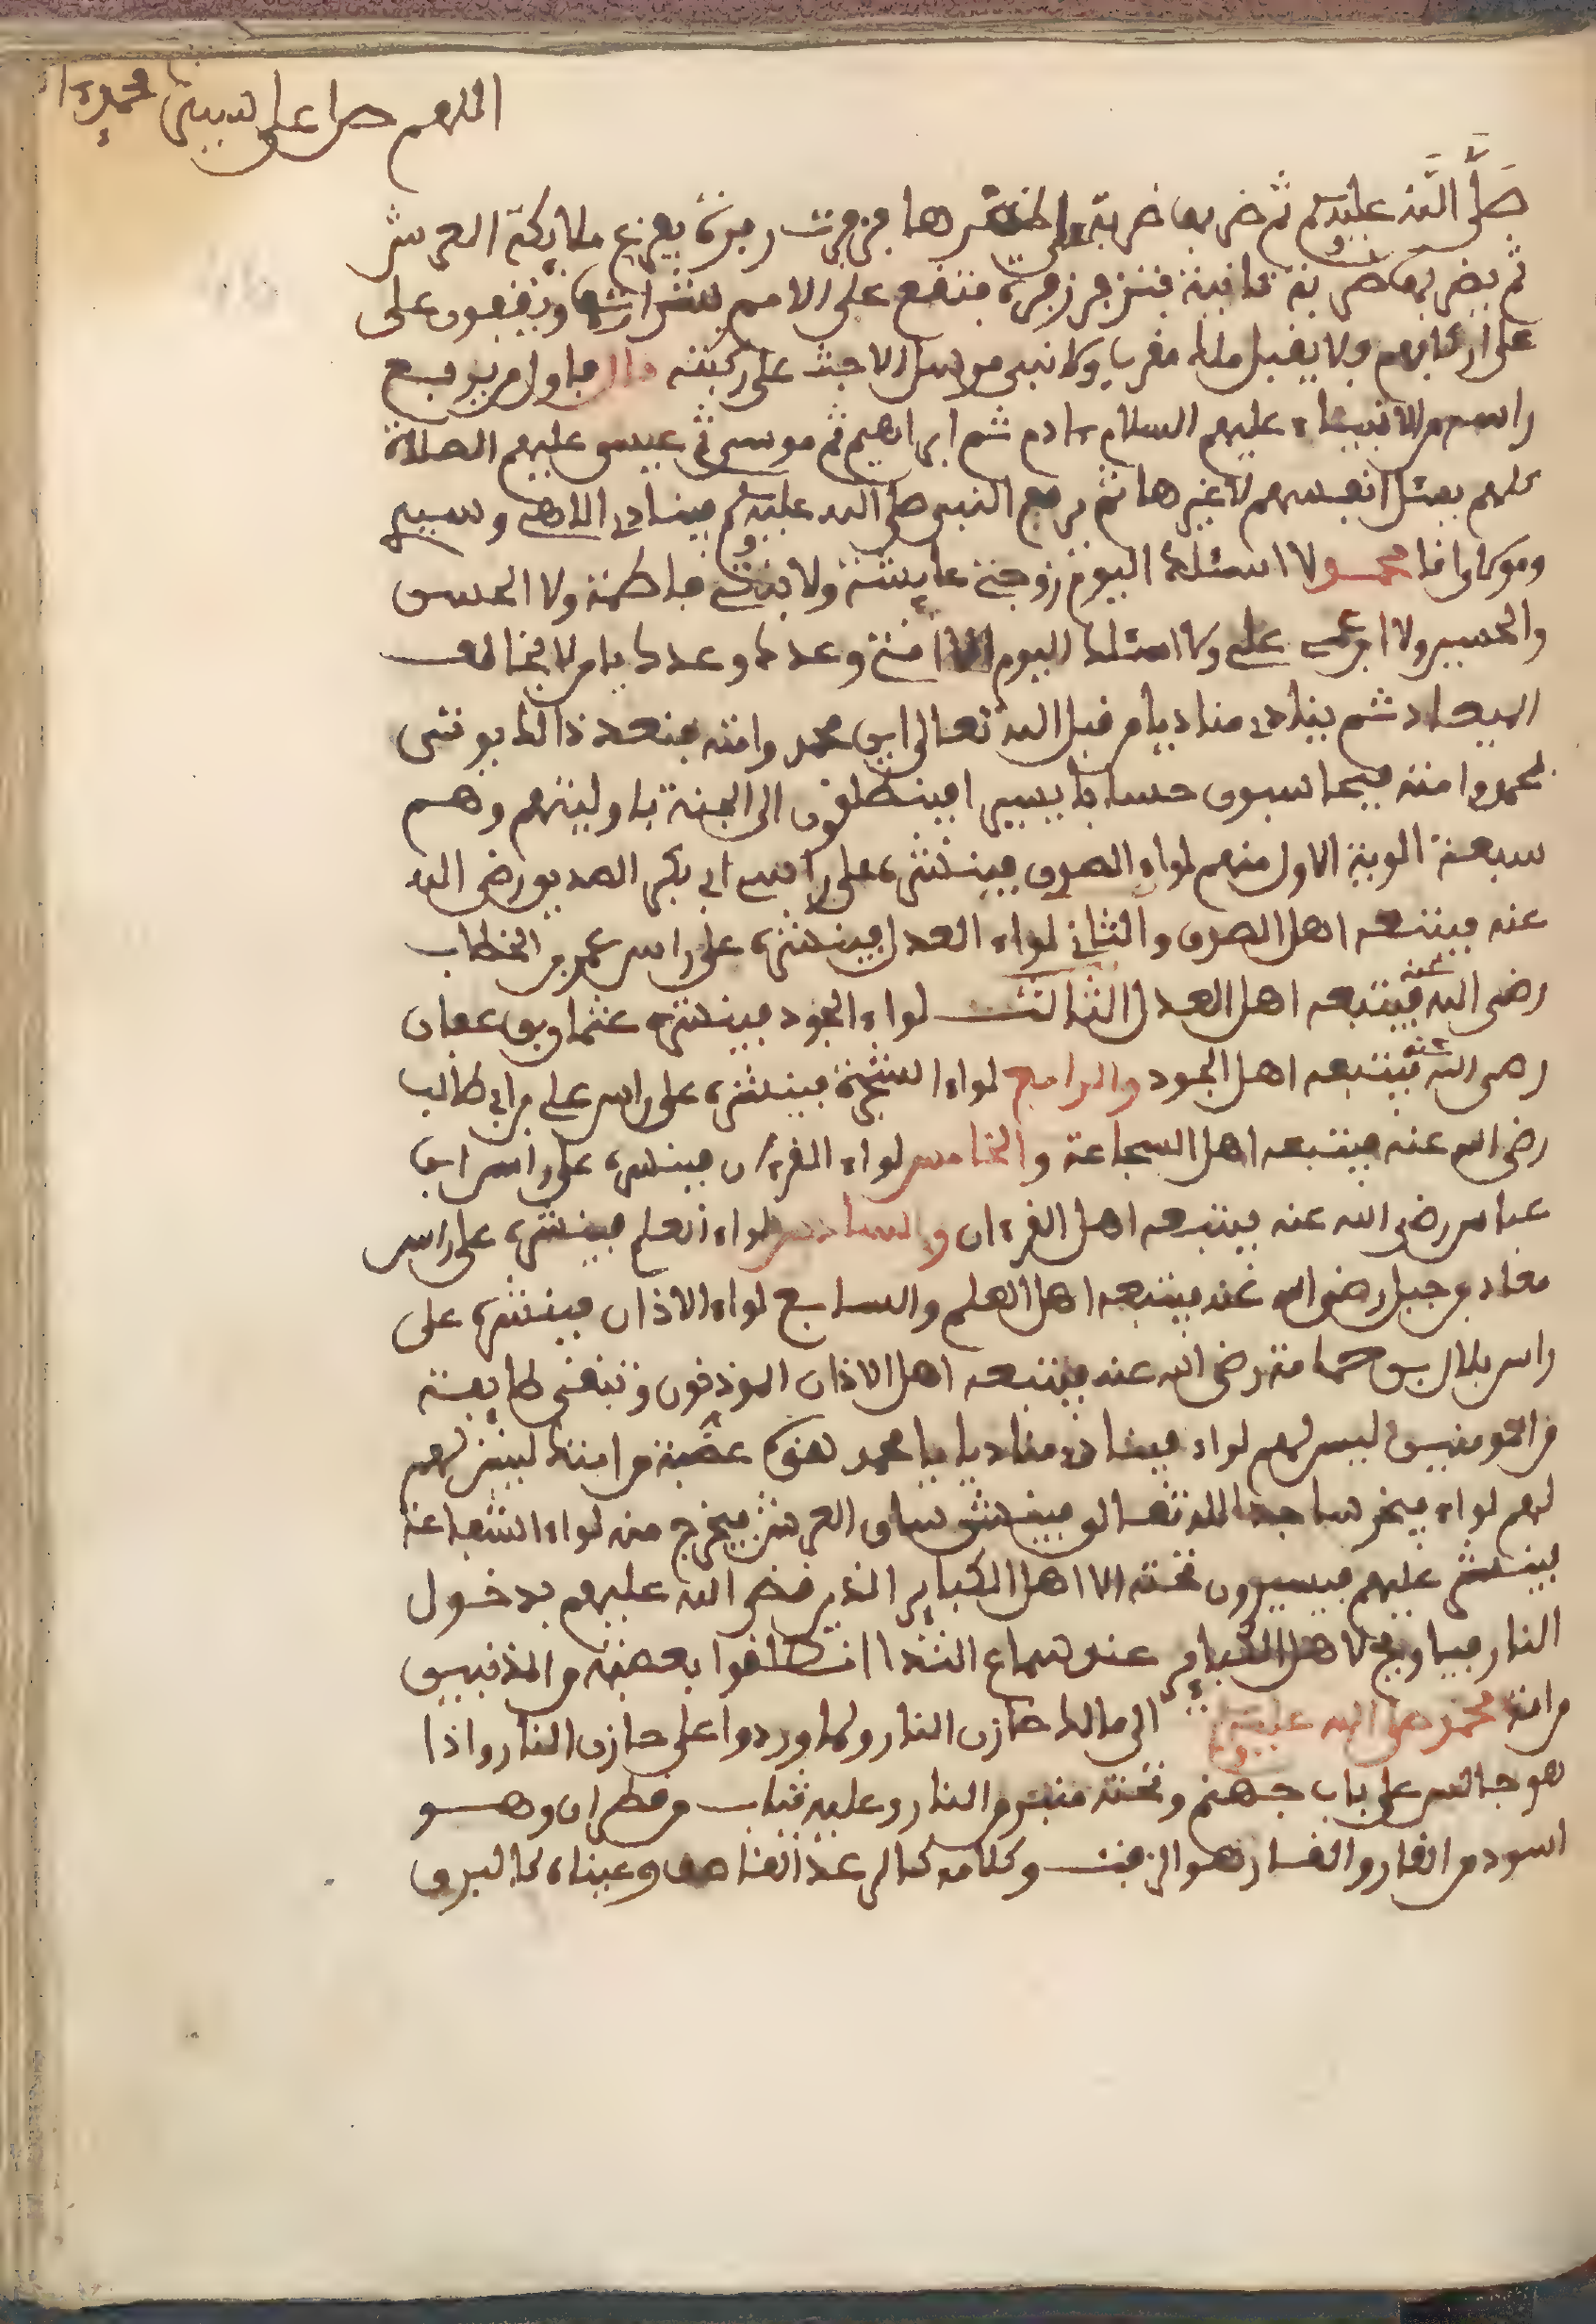 اللهم صل على نبينا محمد
صلى الله عليه وسلم ثم ضربها ضربة على خنصرها فزفرت زفرة يفزع ملايكة العرش
ثم يضربها ضربة ثانية فتزفر زفرة فتقع على الامم بشرارها ويقعون على
على اركابهم ولا يبقى ملك مقرب ولا نبي مرسل الا جث على ركبته قال فاول من يرفع
راسه من الانبياء عليهم السلام ءادم ثم ابراهيم ثم موسى ثم عيسى عليهم الصلاة
كلهم يسئل انفسهم لا غيرها ثم يرفع النبي صلى الله عليه وسلم فينادي الاهي وسيدي
ومولاي انا محمد لا اسئلك اليوم زوجتي عايشة ولا بنتي فاطمة ولا الحسن
والحسين ولا ابن عمي علي ولا اسئلك اليوم الا امتي وعدك وعدك يا من لا يخالف
الميعاد ثم ينادي منادي من قبل الله تعالى اين محمد وامته فبعد ذالك يوتى
بمحمد وامته فيحاسبون حسابا يسيرا فينطلقون الى الجنة بالويتهم وهم
سبعة الوية الاول منهم لواء الصدق فينشر على راس ابي بكر الصديق رضي الله
عنه فيتبعه اهل الصدق والثاني لواء العدل فينشر على راس عمر بن الخطاب
رضي الله عنه فيتبعه اهل العدل الثالث لواء الجود فينشر عثمان بن عفان
رضي الله عنه فيتبعه اهل الجود والرابع لواء الشجرة فينشر على راس علي بن ابي طالب
رضي الله عنه فيتبعه اهل الشجاعة والخامس لواء القرءان فينشر على راس ابن
عباس رضي الله عنه فيتبعه اهل القرءان والسادس لواء العلم فينشر على راس
معاذ بن جبل رضي الله عنه فيتبعه اهل العلم والسابع لواء الاذان فينشر على
راس بلال بن حمامة رضي الله عنه فيتبعه اهل الاذان الموذنون وتبقى طايفة
من المومنين ليس لهم لواء فينادي منادي يا محمد عصبة من امتك ليس لهم
لهم لواء فيخر ساجدا لله تعالى فينشق ساق العرش فيخرج منه لواء الشفاعة
فينشر عليهم فيسيرون تحته الا اهل الكباير الذين قضى الله عليهم بدخول
النار اهل الكباير عند سماع الندا انطلقوا بعصبة من المذنبين
من امة محمد صلى الله عليه وسلم الى مالك خازن النار ولما وردوا على خازن النار واذا
هو جالس على باب جهنم وتحته منبر من النار وعليه ثياب من قطران وهو
اسود من القار والقار هو الزفت وكلامه كالرعد القاصف وعيناه كالبرق